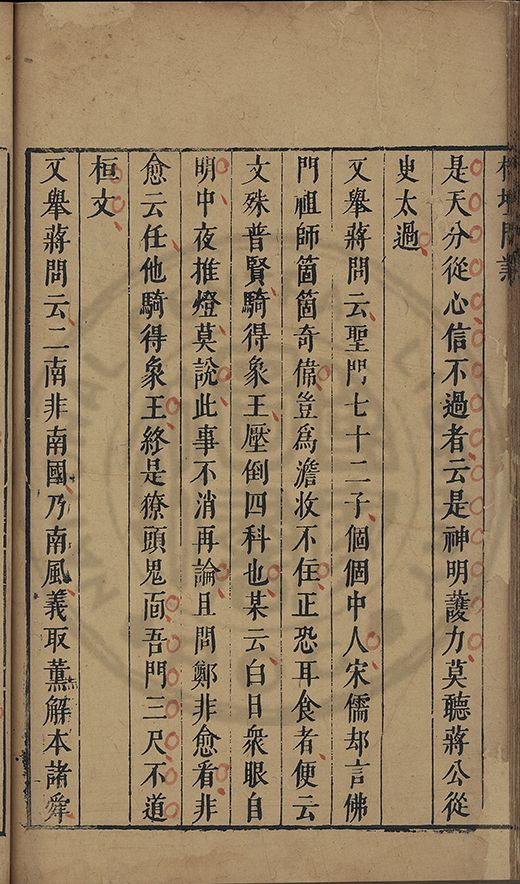 是天分從心信不過者云是神明護力莫聽蔣公從
史太過
又舉蔣問云聖門七十二子個個中人宋儒却言佛
門祖師箇箇奇偉豈爲澹收不住正恐耳食者便云
文殊普賢騎得象王壓倒四科也某云白日衆眼自
明中夜推燈莫說此事不消再論且問鄭非愈看非
愈云任他騎得象王終是獠頭鬼面吾門三尺不道
桓文
又舉蔣問云二南非南國乃南風義取薰解本諸舜